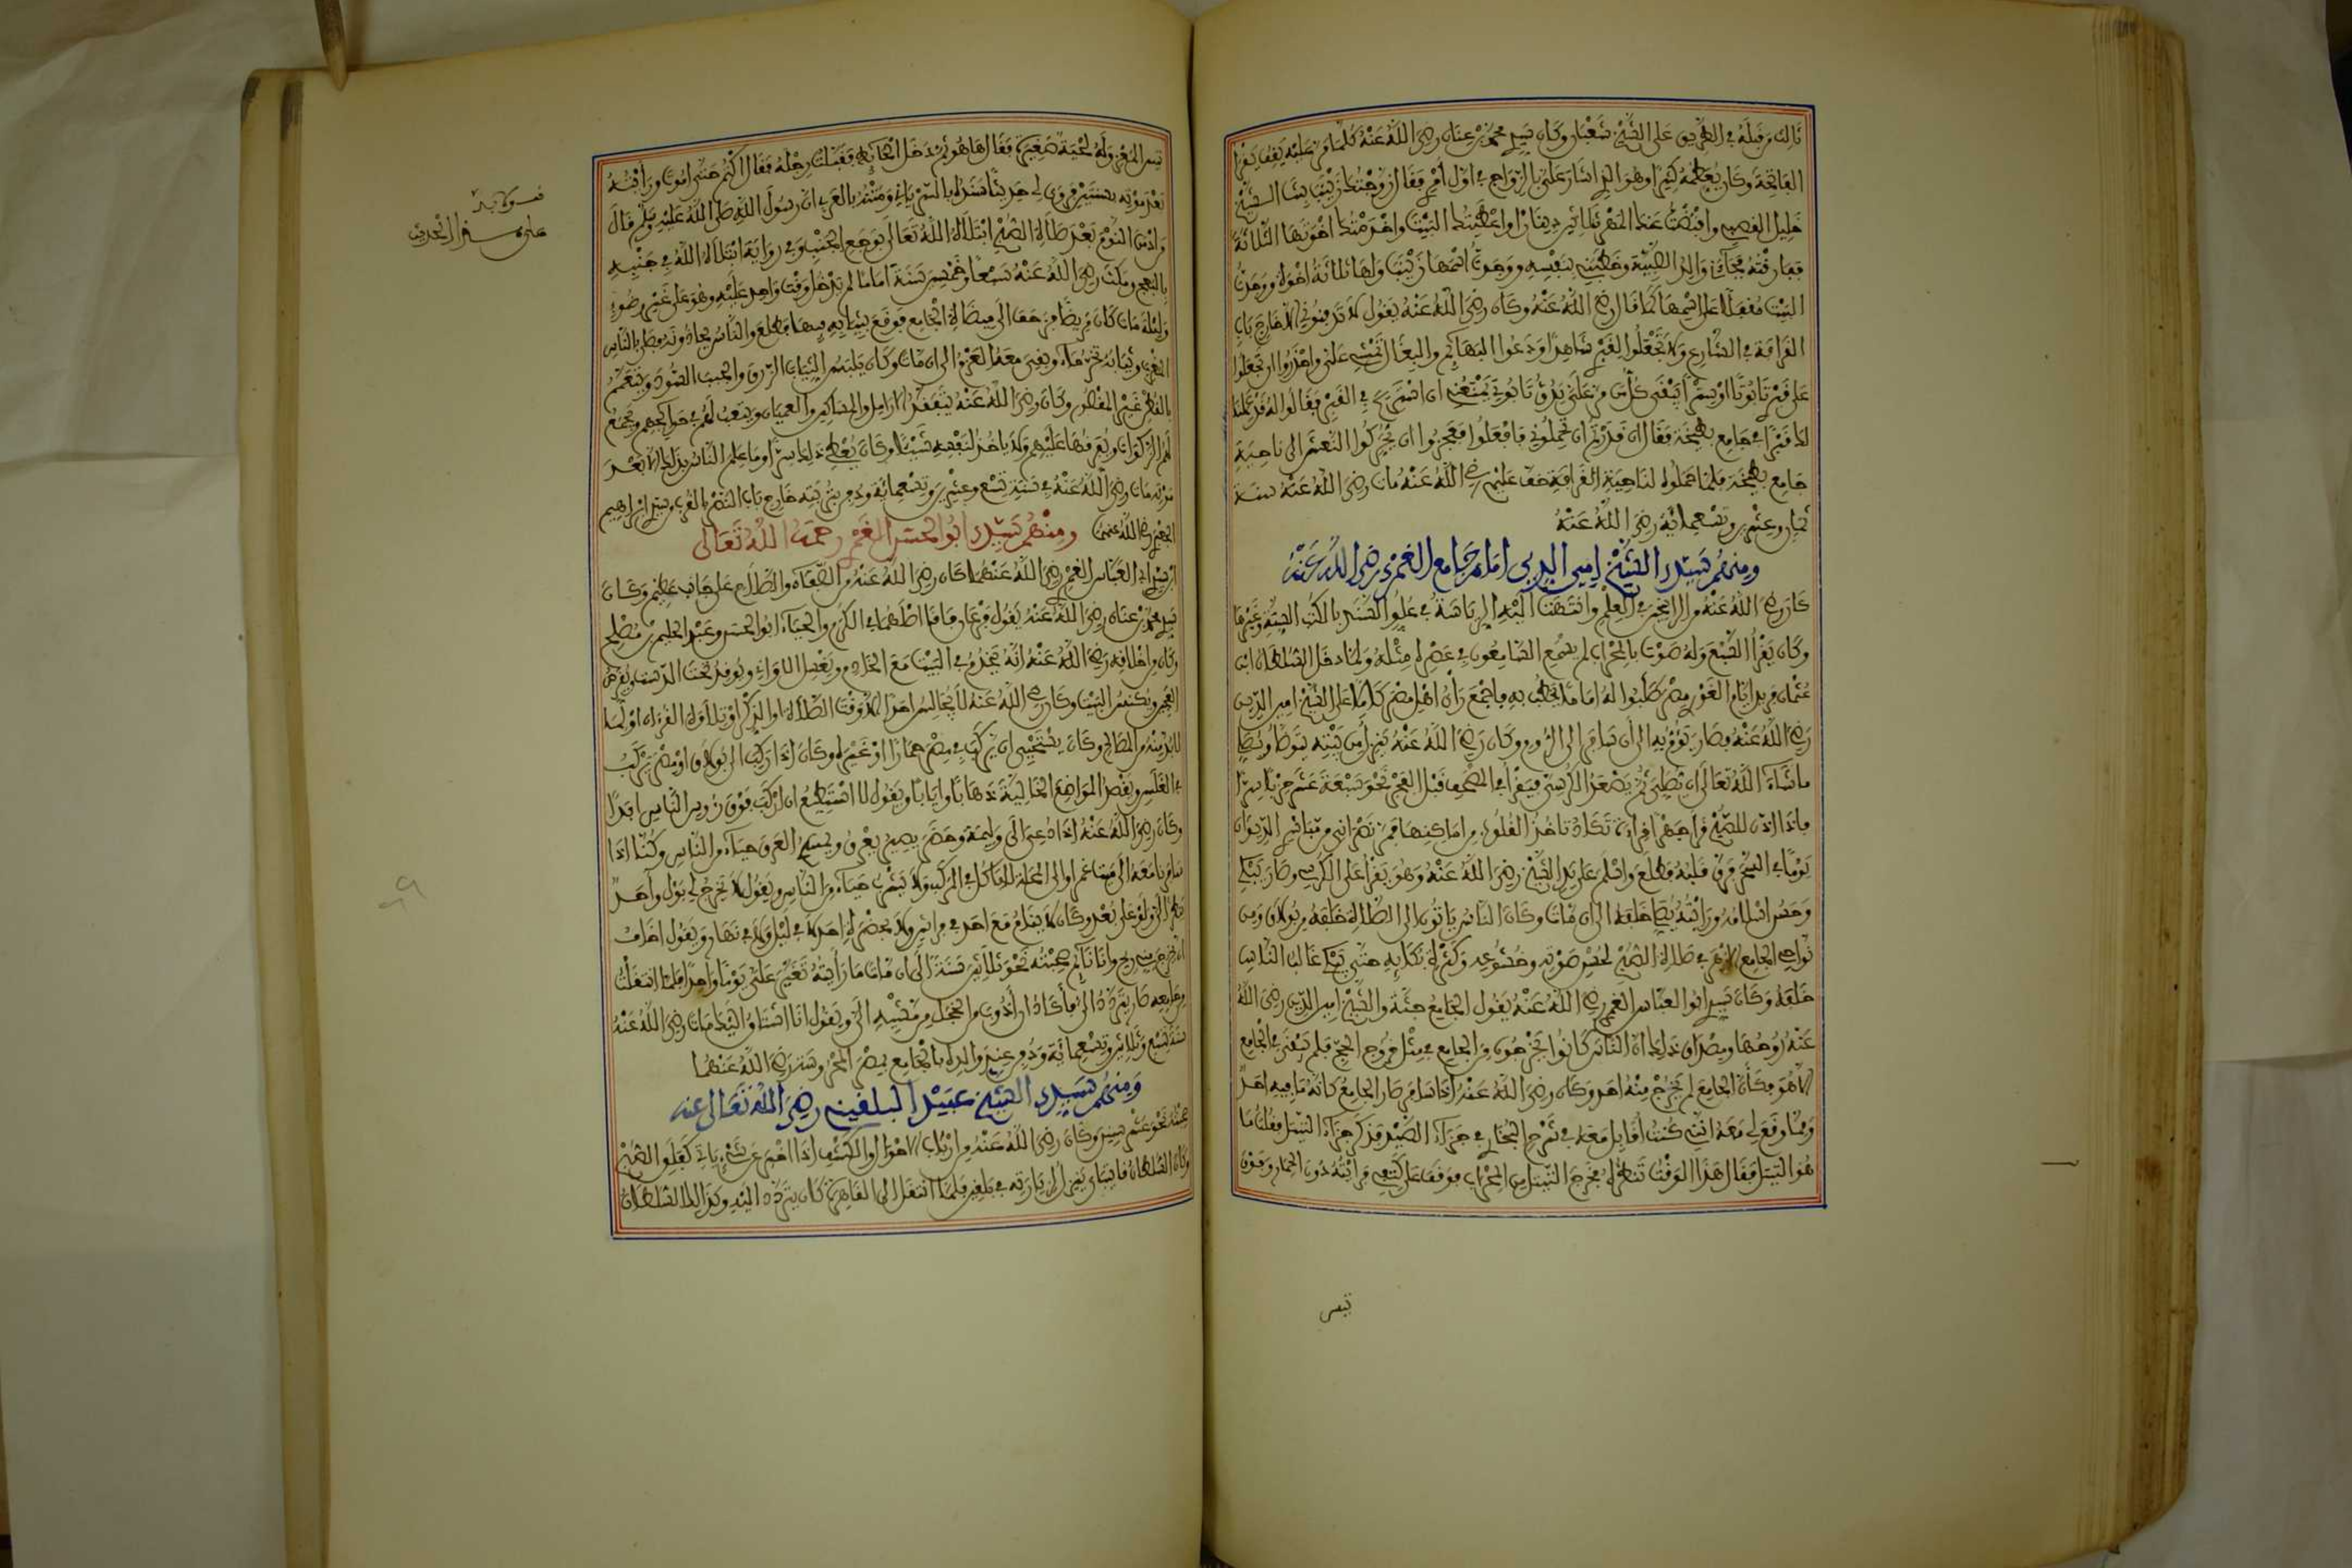 ذالك مر قبله في الطريق على الشيخ شعبان وكان سيدي محمد بن عنان رضي الله عنه كلما مر عليه يقف يقرأ
الفاتحة وكان يعظمه كثيرا وهو الذي اشار علي بالزواج في اول امري فقال زوجتك زينب بنت الشيخ
خليل القصبي واقبضت عنك المهر ثلاثين دينارا واعطيتك البيت واخدمتك اخوتها الثلاثة
ففارقته فجاءني والد الصبية وخطبني بنفسه ووجدت اسمها زينب ولها ثلاثة اخوة ووجدت
البيت مقفلا على اسمها كما قال رضي الله عنه وكان رضي الله عنه يقول لا تدفنوني الا خارج باب
القرافة في الشارع ولا تجعلوا لقبري شاهدا ودعوا البهائم والبغال تمشي علي واحذروا ان تجعلوا
على قبري تابوتا او سترا يبقى كل من مر علي يدق تابوتي يمنعني ان استريح في القبر فقالوا له قد عملنا
لك قبرا في جامع بطيخة فقال ان قدرتم ان تحملوني فافعلوا فعجزوا ان يحركوا النعش الى ناحية
جامع بطيخة فلما حملوه لناحية القرافة خف عليهم رضي الله عنه مات رضي الله عنه سنة
نيف وعشرين وتسعمائة رضي الله عنه
ومنهم سيدي الشيخ امين الدين امام جامع الغمري رضي الله عنه
كان رضي الله عنه من الراسخين في العلم وانتهت اليه الرياسة في علو السند بالكتب الستة وغيرها
وكان يقرأ السبع وله صوت بالمحراب لم يسمع السامعون في عصره مثله ولما دخل السلطان ابن
عثمان مريد ايام الغوري مصر طلبوا له اماما يخطب به فاجمع رأي اهل مصر كلها على الشيخ امين الدين
رضي الله عنه فصار يؤم به الى ان سافر الى الروم وكان رضي الله عنه ينزل من بيته يتوضأ ويصلي
ما شاء الله تعالى ان يصلي ثم يصعد الكرسي فيقرأ في المصحف قبل الفجر نحو سبعة عشر حزبا سرا
فاذا اذن للصبح قرأ جهرا قراءة تكاد تأخذ القلوب من اماكنها فمر نصراني من مباشري الديوان
يوما في السحر فرق قلبه فطلع واسلم على يد الشيخ رضي الله عنه وهو يقرأ على الكرسي وصار يبكي
وحسن اسلامه ورأيته يصلي خلفه الى ان مات وكان الناس يأتون الى الصلاة خلفه من بولاق ومن
نواحي الجامع الازهر في صلاة الصبح لحسن صوته وخشوعه وكثرة بكائه حتى يبكي غالب الناس
خلفه وكان سيدي ابو العباس الغمري رضي الله عنه يقول الجامع جثة والشيخ امين الدين رضي الله
عنه روحها ومصداق ذلك ان الناس كانوا يخرجون من الجامع في مثل خروج الحج فلم يبق في الجامع
الا هو فكأن الجامع لم يخرج منه احد وكان رضي الله عنه اذا سافر صار الجامع كانه ما فيه احد
ومما وقع لي معه انني كنت اقابل معه في شرح البخاري في جزاء الصيد فذكر جزاء التيتل فقلت ما
هو التيتل فقال هذا الوقت تنظره فخرج التيتل من المحراب فوقف على كتفي فرأيته دون الحمار وفوق
تيس
تيس المعز وله لحية صغيرة فقال ها هو ثم دخل الحائط فقبلت رجله فقال اكتم حتى اموت ورأيته
بعد موته بسنتين فروى لي حديثا سنده بالسرياني ومتنه بالعربي ان رسول الله صلى الله عليه وسلم قال
من ادمن النوم بعد صلاة الصبح ابتلاه الله تعالى بوجع الجنب وفي رواية ابتلاه الله في جنبه
بالبعج ومكث رضي الله عنه سبعا وخمسين سنة اماما لم يدخل وقت واحد عليه وهو على غير وضوء
وليلة مات كان مريضا فزحف الى ميضاة الجامع فوقع بثيابه فيها فطلع والناس يحاذونه فصلى بالناس
المغرب وثيابه تخر ماء وبقي معه العزم الى ان مات وكان يلبس الثياب الزرق والجبب السود ويتعمم
بالقطن غير المقصور وكان رضي الله عنه يتفقد الارامل والمساكين والعميان ويتعب لهم في حوائجهم ويجمع
لهم الزكوات ويفرقها عليهم ولا ياخذ لنفسه شيئا وكان يعطي ذلك سرا وما علم الناس بذلك الا بعد
موته مات رضي الله عنه في سنة تسع وعشرين وتسعمائة ودفن بتربته خارج باب النصر بالقرب من سيدي ابراهيم
الجعبري رضي الله عنهما ومنهم سيدي ابو الحسن الغمري رحمه الله تعالى
ابن سيدي ابي العباس الغمري رضي الله عنهما كان رضي الله عنه من الصفاء والصلاح على جانب عظيم وكان
سيدي محمد بن عنان رضي الله عنه يقول فرعان فاقا اصلهما في الكرم والحياء ابو الحسن وعبد الحليم بن مصلح
وكان من اخلاقه رضي الله عنه انه يخدم في البيت مع الخدام ويغسل الاواني ويوقد تحت الدست ويقرص
العجين ويكنس البيت وكان رضي الله عنه لا يجالس احدا الا وقت الصلاة او الذكر او تلاوة القرءان او لما
لا بد منه من المصالح وكان يستحيي ان يركب في مصر حمارا او غيره وكان اذا ركب الى بولاق او مصر يركب
في الغلس ويقصد المواضع الخالية ذهابا وايابا ويقول لا استطيع ان اركب فوق رءوس الناس ابدا
وكان رضي الله عنه اذا دعي الى وليمة وحضر يصير يعرق ويمسح العرق حياء من الناس وكنا اذا
سافرنا معه الى ميت غمر او الى المحلة لا ياكل في المركب ولا يشرب حياء من الناس ويقول لا يخرج لي بول واحد
ينظر الي ولو على بعد وكان لا ينام مع احد في فراش ولا بحضرة احد لا في ليل ولا في نهار ويقول اخاف
ان يخرج مني ريح وانا نائم صحبته نحو ثلاثين سنة الى ان مات ما رأيته تغير علي يوما واحدا فلما انتقلت
من جامعه صار يتردد الي فأكاد ان اذوب من الخجل من مشيه الي ويقول انا اشتاق اليك مات رضي الله عنه
سنة تسع وثلاثين وتسعمائة ودفن عند والده بالجامع بمصر المحروسة رضي الله عنهما
ومنهم سيدي الشيخ عبيد البلقيني رضي الله تعالى عنه
صحبته نحو عشر سنين وكان رضي الله عنه من ارباب الاحوال والكشف اذا اخبر عن شيء ياتي كفلق الصبح
وكان السلطان قايتباي ينزل لزيارته في بلقين فلما انتقل الى القاهرة كان يتردد اليه وكذالك السلطان